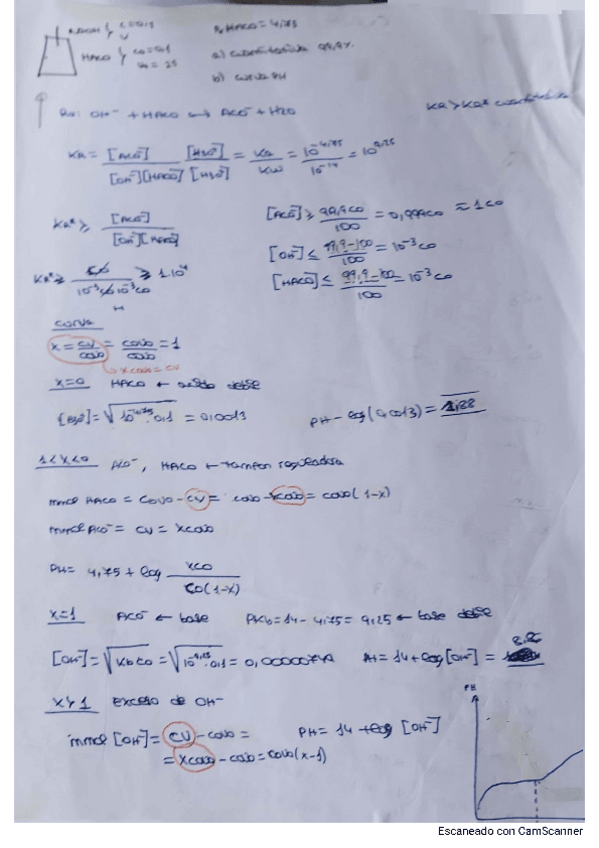 NaOH } C=0,1 V
PKHACO = 4,75
HACO } Co=0,1 Vo = 25
a) cuantitativa 99,9%
b) curva PH
Rv: OH⁻ + HACO ⟷ ACO⁻ + H2O
KR > KR* cuantitativa
KR = [ACO⁻] / [OH⁻][HACO] [H3O⁺] / [H3O⁺] = Ka / Kw = 10^-4,75 / 10^-14 = 10^9,25
KR* ≥ [ACO⁻] / [OH⁻][HACO]
[ACO⁻] ≥ 99,9Co / 100 = 0,999Co ≈ 1Co
[OH⁻] ≤ 99,9-100 / 100 = 10⁻³Co
KR* ≥ Co / 10⁻³Co 10⁻³Co ≥ 1·10⁴
[HACO] ≤ 99,9-100 / 100 = 10⁻³Co
curva
x = CV / CoVo = CoVo / CoVo = 1
→ xCoVo = CV
x=0 HACO ← ácido debil
[H3O⁺] = √10^-4,75·0,1 = 0,0013
PH - log(0,0013) = 2,88
1<x<0 ACO⁻, HACO ← tampon reguladora
mmol HACO = CoVo - CV = CoVo - xCoVo = CoVo(1-x)
mmol ACO⁻ = CV = xCoVo
PH = 4,75 + log xCo / Co(1-x)
x=1 ACO⁻ ← base PKb = 14 - 4,75 = 9,25 ← base debil
[OH⁻] = √KbCo = √10^-9,25·0,1 = PH = 14 + log[OH⁻] =
x>1 exceso de OH⁻
PH
mmol [OH⁻] = CV - CoVo = PH = 14 + log [OH⁻]
= xCoVo - CoVo = CoVo(x-1)
Escaneado con CamScanner